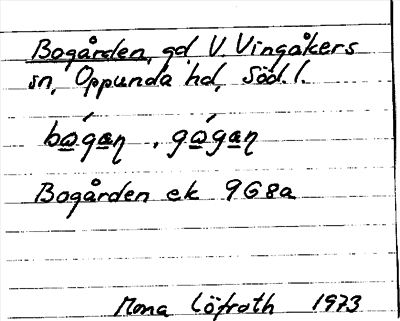 Bogården, gd V. Vingåkers
sn, Oppunda hd, Söd. l.
bo̲´ga̲ꞑ . go̲´ga̲ꞑ
Bogården ek 9G8a
Mona Löfroth 1973